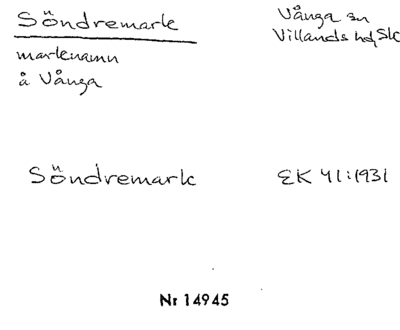 Söndremark
Vånga sn
Villands hd, Sk
markenamn
å Vånga
Söndremark
EK 41:1931
Nr 14945